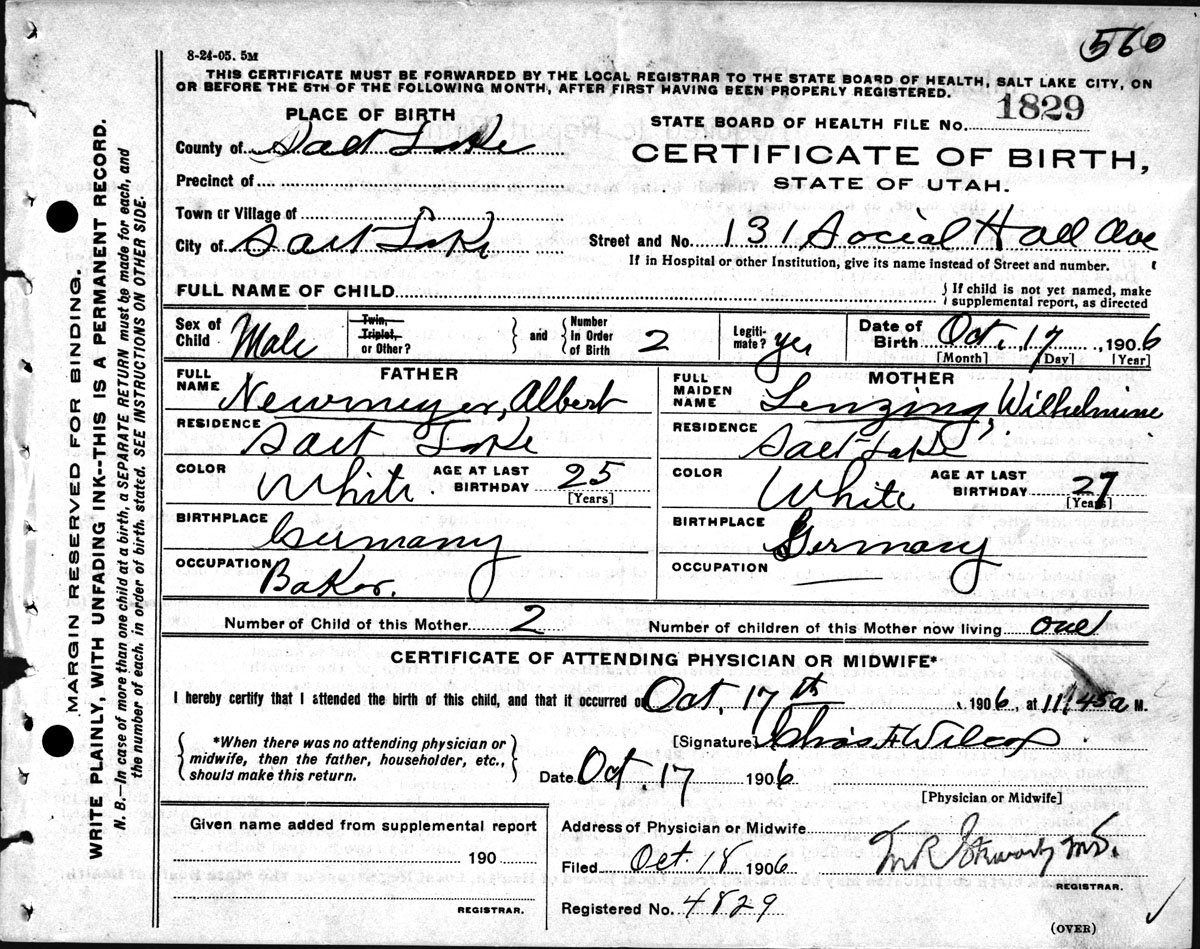 560
8-24-05. 5M
THIS CERTIFICATE MUST BE FORWARDED BY THE LOCAL REGISTRAR TO THE STATE BOARD OF HEALTH, SALT LAKE CITY, ON
OR BEFORE THE 5TH OF THE FOLLOWING MONTH, AFTER FIRST HAVING BEEN PROPERLY REGISTERED.
PLACE OF BIRTH
STATE BOARD OF HEALTH FILE No. 1829
County of Salt Lake
CERTIFICATE OF BIRTH,
Precinct of
STATE OF UTAH.
Town or Village of
City of Salt Lake
Street and No. 131 Social Hall Ave
If in Hospital or other Institution, give its name instead of Street and number.
FULL NAME OF CHILD
If child is not yet named, make
supplemental report, as directed
Sex of Child Male
Twin, Triplet, or Other?
and
Number in Order of Birth 2
Legiti-mate? yes
Date of Birth Oct. 17, 1906
[Month] [Day] [Year]
FATHER
FULL NAME Newmeyer, Albert
RESIDENCE Salt Lake
COLOR White.
AGE AT LAST BIRTHDAY 25
[Years]
BIRTHPLACE Germany
OCCUPATION Baker.
MOTHER
FULL MAIDEN NAME Lenzing, Wilhelmine
RESIDENCE Salt Lake
COLOR White
AGE AT LAST BIRTHDAY 27
[Years]
BIRTHPLACE Germany
OCCUPATION
Number of Child of this Mother 2
Number of children of this Mother now living one
CERTIFICATE OF ATTENDING PHYSICIAN OR MIDWIFE*
I hereby certify that I attended the birth of this child, and that it occurred on Oct. 17th, 1906, at 11/45a M.
*When there was no attending physician or
midwife, then the father, householder, etc.,
should make this return.
[Signature] Chas F Wilcox
Date Oct. 17 1906
[Physician or Midwife]
Given name added from supplemental report
190
REGISTRAR.
Address of Physician or Midwife
Filed Oct. 18 1906
M.D.
REGISTRAR.
Registered No. 4829
(OVER)
MARGIN RESERVED FOR BINDING.
WRITE PLAINLY, WITH UNFADING INK--THIS IS A PERMANENT RECORD.
N. B.—In case of more than one child at a birth, a SEPARATE RETURN must be made for each, and
the number of each, in order of birth, stated. SEE INSTRUCTIONS ON OTHER SIDE.